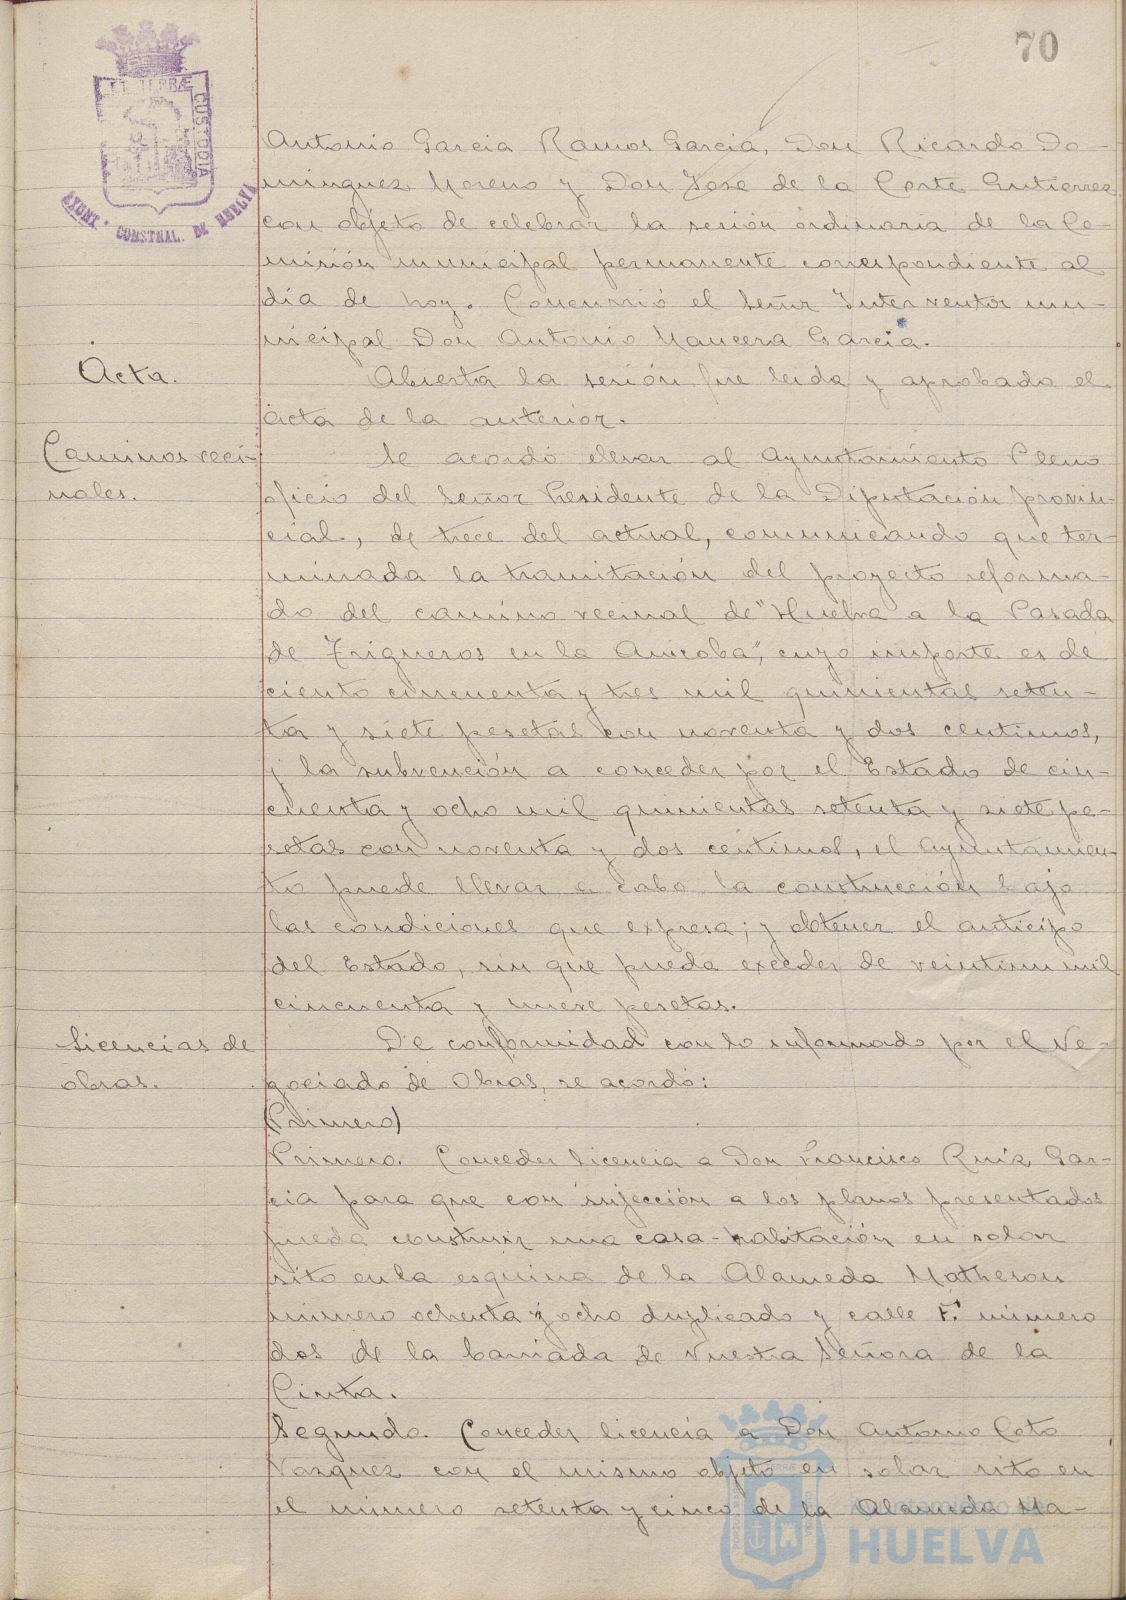 70
PORTUS MARIS ET TERRÆ CUSTODIA
AYUNT. CONSTNAL. DE HUELVA
Antonio Garcia Ramos Garcia, Don Ricardo Do-
minguez Moreno y Don José de la Corte Gutierrez
con objeto de celebrar la sesión ordinaria de la Co-
misión municipal permanente correspondiente al
día de hoy. Concurrió el Señor Interventor mu-
nicipal Don Antonio Mancera Garcia.
Acta.
Abierta la sesión, fue leida y aprobada el
acta de la anterior.
Caminos veci-
nales.
Se acordó elevar al Ayuntamiento Pleno
oficio del Señor Presidente de la Diputación provin-
cial, de trece del actual, comunicando que ter-
minada la tramitación del proyecto reforma-
do del camino vecinal de "Huelva a la Pasada
de Trigueros en la Anicoba", cuyo importe es de
ciento cincuenta y tres mil quinientas seten-
ta y siete pesetas con noventa y dos centimos,
y la subvención a conceder por el Estado de cin-
cuenta y ocho mil quinientas setenta y siete pe-
setas con noventa y dos centimos, el Ayuntamien-
to puede llevar a cabo la construcción bajo
las condiciones que expresa; y obtener el anticipo
del Estado, sin que pueda exceder de veintiun mil
cincuenta y nueve pesetas.
Licencias de
obras.
De conformidad con lo informado por el Ne-
gociado de Obras, se acordó:
(Primero)
Primero. Conceder licencia a Don Francisco Ruiz Gar-
cia para que con sujección a los planos presentados
pueda construir una casa-habitación en solar
sito en la esquina de la Alameda Matheson
número ochenta y ocho duplicado y calle F. número
dos de la barriada de Nuestra Señora de la
Cinta.
Segundo. Conceder licencia a Don Antonio Coto
Vazquez con el mismo objeto en solar sito en
el número setenta y cinco de la Alameda Ma-
Ayuntamiento de
HUELVA